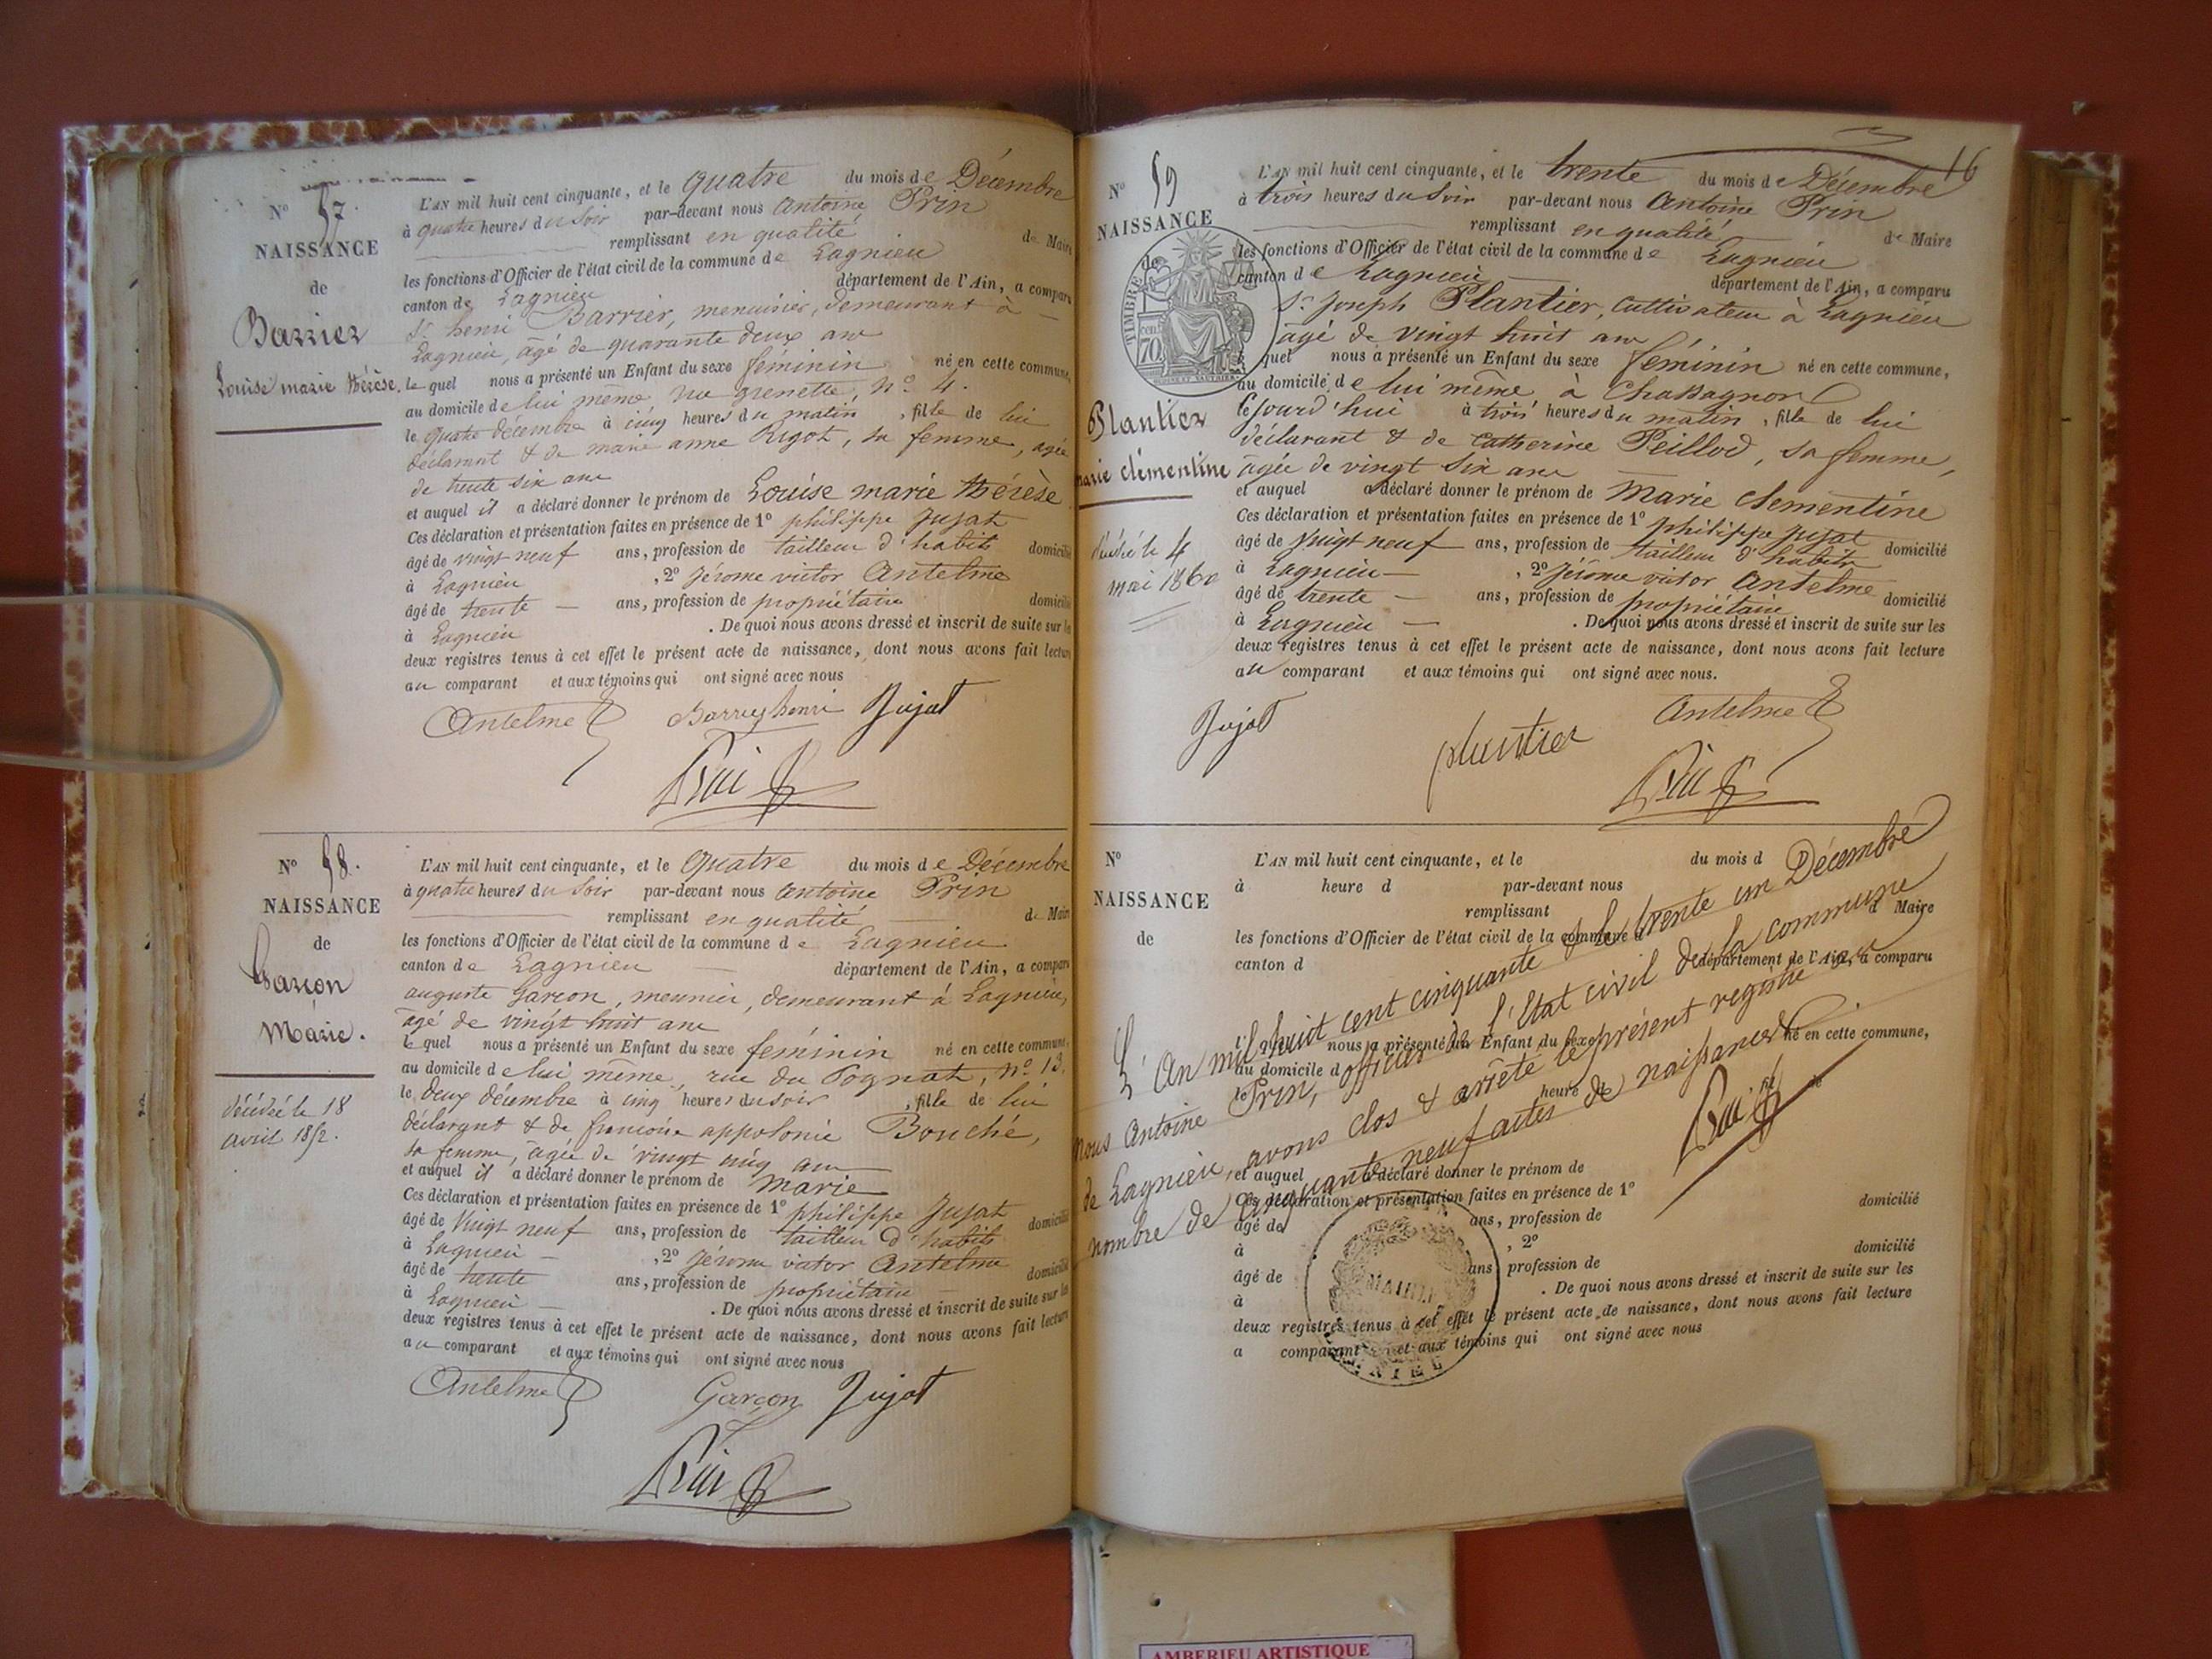 N° 57.
NAISSANCE
de
Barrier
Louise marie thérèse.
L'AN mil huit cent cinquante, et le quatre du mois de Décembre
à quatre heures du Soir par-devant nous Antoine Prin
remplissant en qualité de Maire
les fonctions d'Officier de l'état civil de la commune de Lagnieu
canton de Lagnieu département de l'Ain, a comparu
Sr henri Barrier, menuisier, demeurant à
Lagnieu, âgé de quarante deux ans
le quel nous a présenté un Enfant du sexe féminin né en cette commune,
au domicile de lui même, rue grenette, n° 4.
le quatre décembre à cinq heures du matin, fille de lui
déclarant & de marie anne Rigot, sa femme, âgée
de trente six ans
et auquel il a déclaré donner le prénom de Louise marie thérèse
Ces déclaration et présentation faites en présence de 1° philippe Jujat
âgé de vingt neuf ans, profession de tailleur d'habits domicilié
à Lagnieu , 2° Jérome victor Antelme
âgé de trente ans, profession de propriétaire domicilié
à Lagnieu . De quoi nous avons dressé et inscrit de suite sur les
deux registres tenus à cet effet le présent acte de naissance, dont nous avons fait lecture
au comparant et aux témoins qui ont signé avec nous
Antelme henri Jujat
Prin
N° 58.
NAISSANCE
de
Garcon
Marie.
décédée le 18
avril 1852.
L'AN mil huit cent cinquante, et le Quatre du mois de Décembre
à quatre heures du Soir par-devant nous Antoine Prin
remplissant en qualité de Maire
les fonctions d'Officier de l'état civil de la commune de Lagnieu
canton de Lagnieu département de l'Ain, a comparu
auguste Garcon, meunier, demeurant à Lagnieu,
âgé de vingt huit ans
le quel nous a présenté un Enfant du sexe féminin né en cette commune,
au domicile de lui même, rue du Pognat, n° 13.
le deux décembre à cinq heures du soir , fille de lui
déclarant & de francoise appolonie Bouché,
sa femme, âgée de vingt cinq ans
et auquel il a déclaré donner le prénom de marie
Ces déclaration et présentation faites en présence de 1° philippe Jujat
âgé de Vingt neuf ans, profession de tailleur d'habits domicilié
à Lagnieu , 2° Jérome victor Antelme
âgé de trente ans, profession de propriétaire domicilié
à Lagnieu . De quoi nous avons dressé et inscrit de suite sur les
deux registres tenus à cet effet le présent acte de naissance, dont nous avons fait lecture
au comparant et aux témoins qui ont signé avec nous
Antelme Garcon Jujat
Prin
16
N° 59
NAISSANCE
de
TIMBRE
70 cent
Plantier
marie clémentine
décédée le 4
mai 1860
L'AN mil huit cent cinquante, et le trente du mois de Décembre
à trois heures du Soir par-devant nous Antoine Prin
remplissant en qualité de Maire
les fonctions d'Officier de l'état civil de la commune de Lagnieu
canton de Lagnieu département de l'Ain, a comparu
Sr Joseph Plantier, Cultivateur à Lagnieu
âgé de vingt huit ans
quel nous a présenté un Enfant du sexe féminin né en cette commune,
au domicile de lui même à Chassagnon
le jourd'hui à trois heures du matin, fille de lui
déclarant & de Catherine Peillod, sa femme,
âgée de vingt six ans
et auquel a déclaré donner le prénom de Marie Clementine
Ces déclaration et présentation faites en présence de 1° philippe Jujat
âgé de vingt neuf ans, profession de tailleur d'habits domicilié
à Lagnieu , 2° Jérome victor Antelme
âgé de trente ans, profession de propriétaire domicilié
à Lagnieu . De quoi nous avons dressé et inscrit de suite sur les
deux registres tenus à cet effet le présent acte de naissance, dont nous avons fait lecture
au comparant et aux témoins qui ont signé avec nous.
Jujat plantier Antelme
Prin
N°
NAISSANCE
de
L'AN mil huit cent cinquante, et le du mois d
à heure d par-devant nous
remplissant d Maire
les fonctions d'Officier de l'état civil de la commune d
canton d département de l'Ain, a comparu
l quel nous a présenté un Enfant du sexe né en cette commune,
au domicile d
le heure d fil de
et auquel a déclaré donner le prénom de
Ces déclaration et présentation faites en présence de 1°
âgé de ans, profession de domicilié
à , 2°
âgé de ans, profession de domicilié
à . De quoi nous avons dressé et inscrit de suite sur les
deux registres tenus à cet effet le présent acte de naissance, dont nous avons fait lecture
a comparant et aux témoins qui ont signé avec nous
L'An mil huit cent cinquante & le trente un Décembre
nous Antoine Prin, officier de l'Etat civil de la commune
de Lagnieu, avons clos & arrêté le présent registre au
nombre de cinquante neuf actes de naissances.
Prin
MAIRIE
AMBERIEU ARTISTIQUE